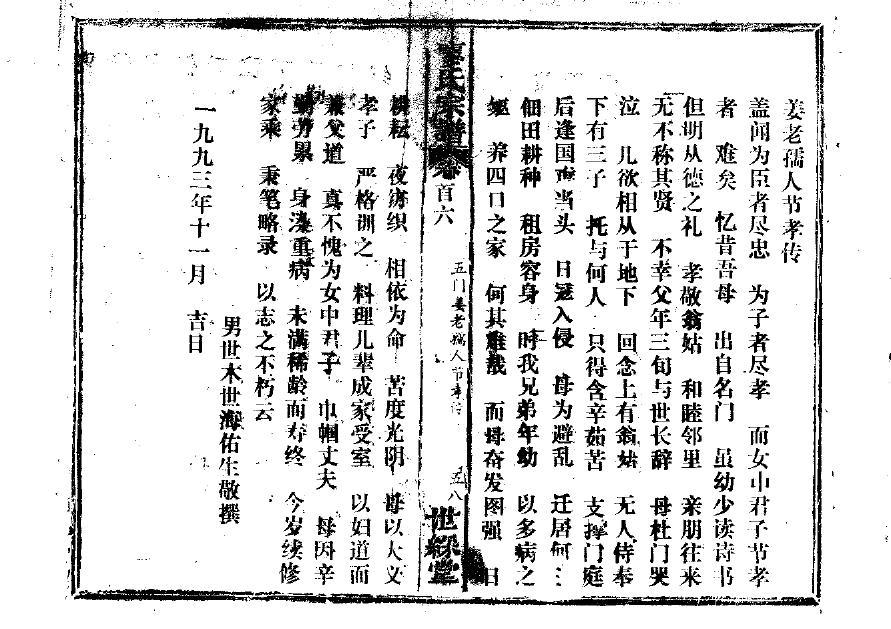 姜老孺人节孝传
盖闻为臣者尽忠 为子者尽孝 而女中君子节孝
者 难矣 忆昔吾母 出自名门 虽幼少读诗书
但明从德之礼 孝敬翁姑 和睦邻里 亲朋往来
无不称其贤 不幸父年三旬与世长辞 母杜门哭
泣 几欲相从于地下 回念上有翁姑 无人侍奉
下有三子 托与何人 只得含辛茹苦 支撑门庭
后逢国难当头 日寇入侵 母为避乱 迁居何
佃田耕种 租房容身 时我兄弟年幼 以多病之
躯 养四口之家 何其难哉 而母奋发图强 日
氏宗谱 卷首六
五门姜老孺人节孝传
五八
世綵堂
耕耘 夜纺织 相依为命 苦度光阴 母以大义
孝子 严格训之 料理儿辈成家受室 以妇道而
兼父道 真不愧为女中君子 巾帼丈夫 母因辛
勤劳累 身染重病 未满稀龄而寿终 今岁续修
家乘 秉笔略录 以志之不朽云
男世木世海佑生敬撰
一九九三年十一月 吉日